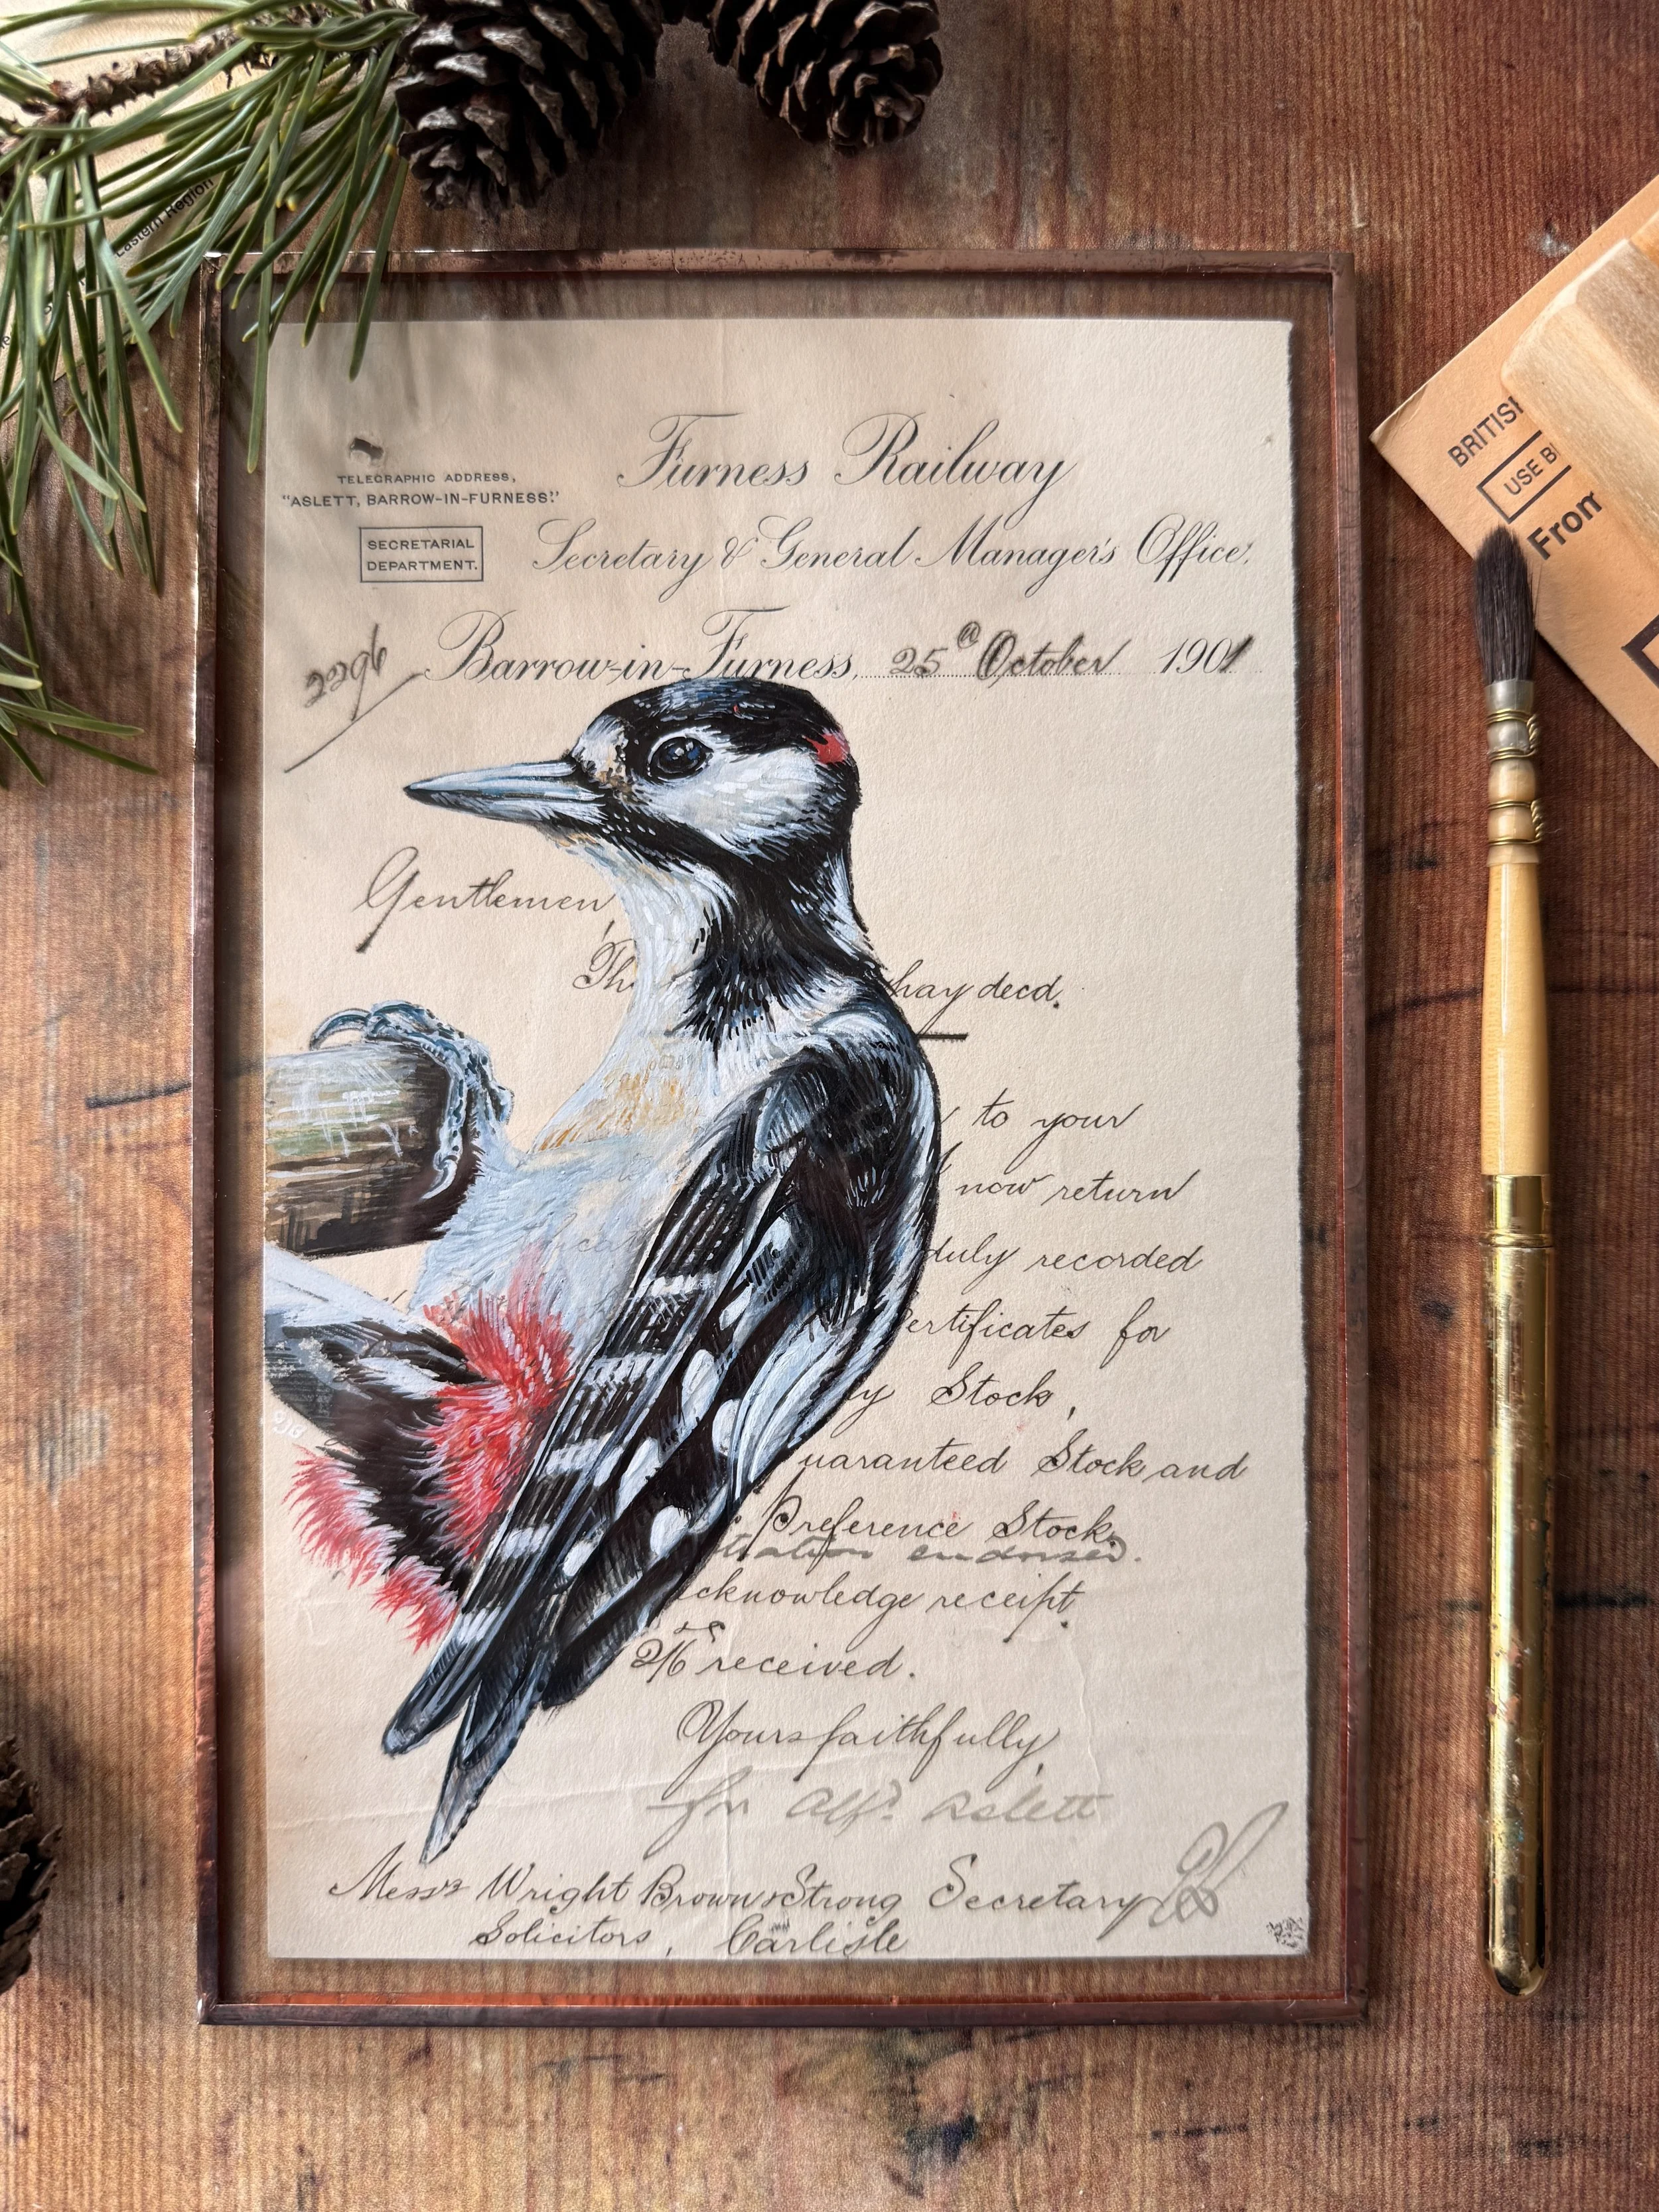 Eastern Region
TELEGRAPHIC ADDRESS,
"ASLETT, BARROW-IN-FURNESS."
SECRETARIAL
DEPARTMENT.
Furness Railway
Secretary & General Manager's Office.
2296
Barrow-in-Furness, 25th October 1901
Gentlemen,
hay decd.
to your
now return
duly recorded
ertificates for
y Stock,
uaranteed Stock and
Preference Stock.
endorsed.
cknowledge receipt.
2/6 received.
Yours faithfully,
for Alfd. Aslett
Secretary
Messrs Wright Brown & Strong
Solicitors, Carlisle
BRITISH
USE B
From